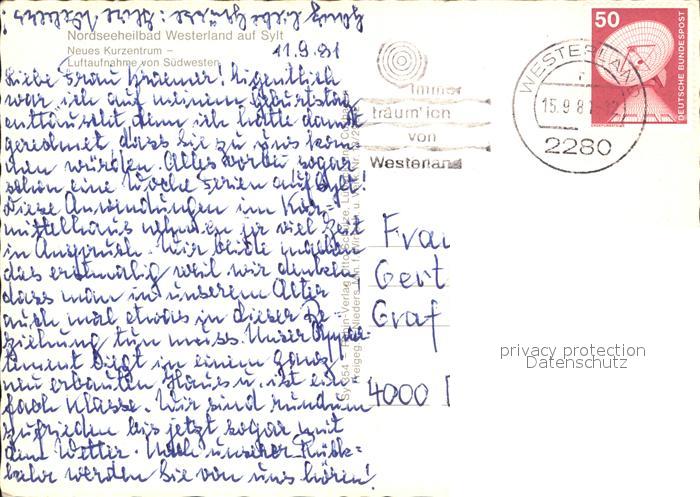 Nordseeheilbad Westerland auf Sylt
Neues Kurzentrum –
Luftaufnahme von Südwesten
11.9.81
Liebe Frau Kraemer! Eigentlich
war ich auf meinem Geburtstag
enttäuscht denn ich hatte damit
gerechnet, dass Sie zu uns kom
men würden. Alles vorbei sogar
schon eine Woche Ferien auf Sylt!
Diese Anwendungen im Kur
mittelhaus nehmen ja viel Zeit
in Anspruch. Wir beide machen
das erstmalig weil wir denken
dass man in unserem Alter
auch mal etwas in dieser Be-
ziehung tun muss. Unser Appar-
tement liegt in einem ganz
neu erbauten Hause u. ist ein-
fach Klasse. Wir sind rundum
zufrieden bis jetzt sogar mit
dem Wetter. Nach unserer Rück-
kehr werden Sie von uns hören!
Ganz liebe Grüsse: Ihre
Immer
träum' ich
von
Westerland
WESTERLAND
15.9.81
2280
50
DEUTSCHE BUNDESPOST
Frau
Gert
Graf
4000
privacy protection
Datenschutz